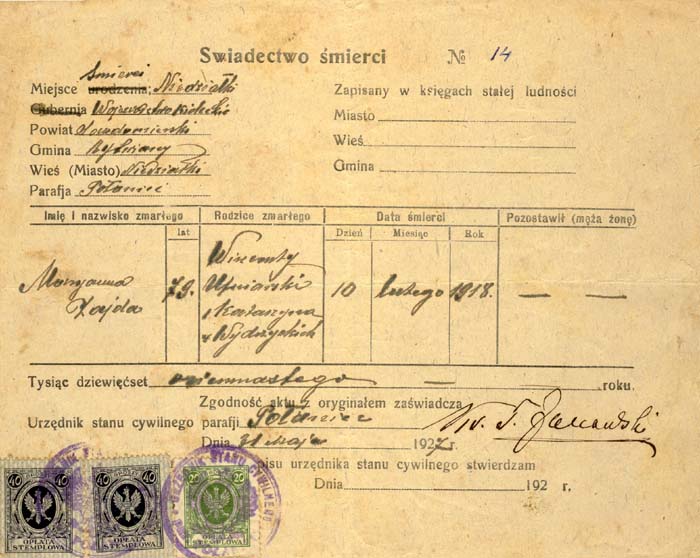 Swiadectwo śmierci № 14
śmierci
Miejsce urodzenia; Niedziałki
Gubernia Województwo Kieleckie
Powiat Sandomierski
Gmina
Wieś (Miasto) Niedziałki
Parafja Połaniec
Zapisany w księgach stałej ludności
Miasto
Wieś
Gmina
Imię i nazwisko zmarłego
lat
Rodzice zmarłego
Data śmierci
Dzień Miesiąc Rok
Pozostawił (męża żonę)
Maryanna
Zajda
79.
Wincenty
i Katarzyna
z Wydrzyckich
10 lutego 1918. — —
Tysiąc dziewięćset osiemnastego — — roku.
Zgodność aktu z oryginałem zaświadcza
Urzędnik stanu cywilnego parafji Połaniec
Dnia 31 Maja 1927 r.
pisu urzędnika stanu cywilnego stwierdzam
Dnia 192 r.
40 40
OPŁATA
STEMPLOWA
40 40
OPŁATA
STEMPLOWA
20 20
OPŁATA
STEMPLOWA
URZĘDNIK STANU CYWILNEGO